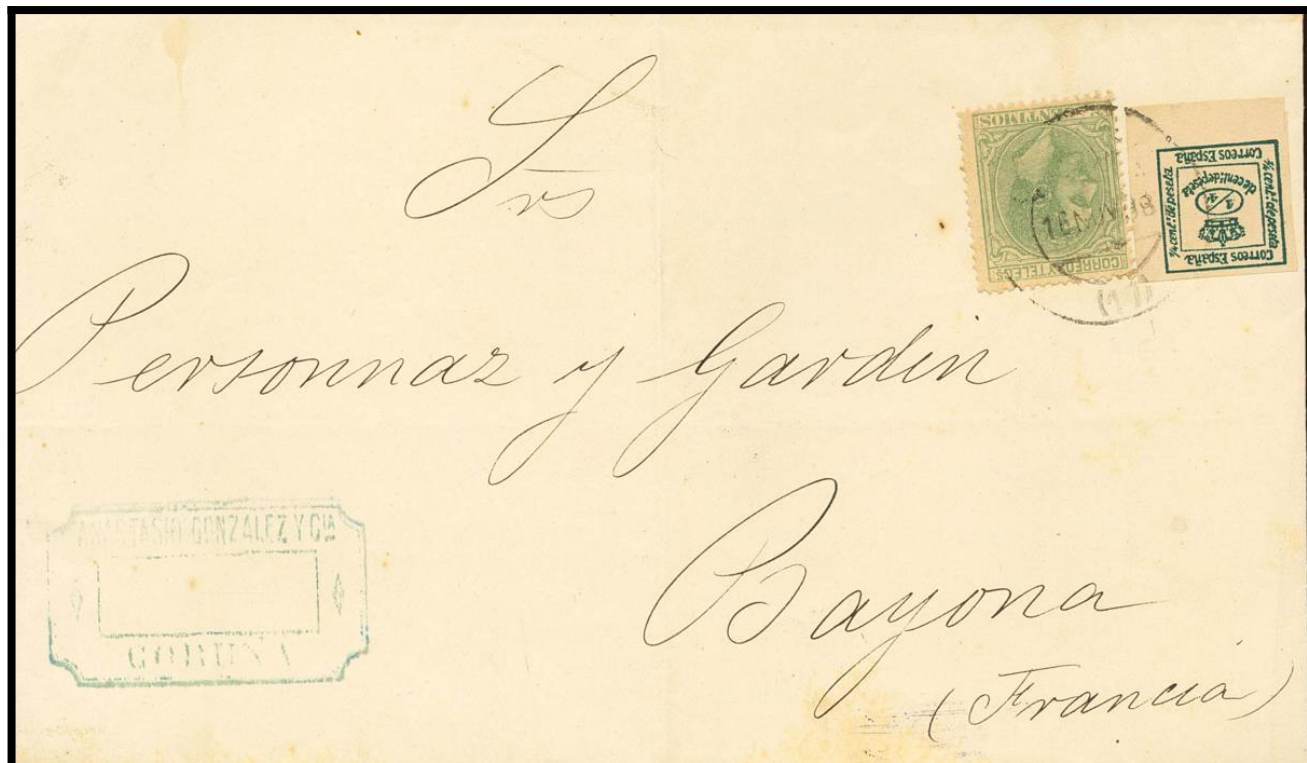 Srs
Personnaz y Gardin
Bayona
(Francia)
ANASTASIO GONZALEZ Y CIA
CORUÑA
CORREOS Y TELEGS
CENTIMOS
(17)
Correos España
¼ cent. de peseta
1/4
de cent. de peseta
Correos España
¼ cent. de peseta